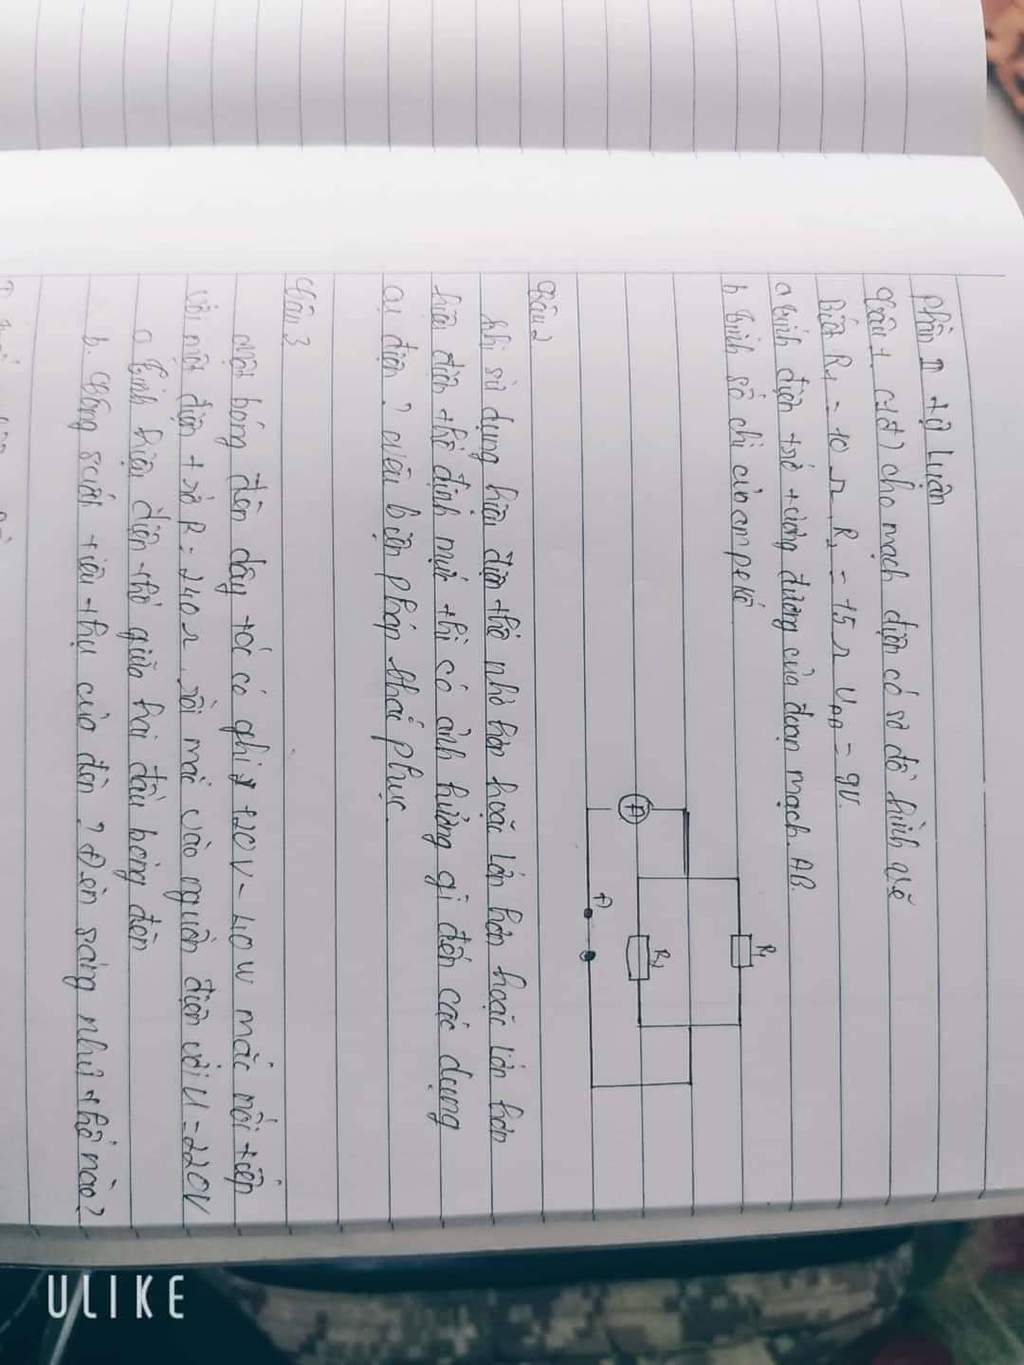 Phần II tự luận
Câu 1. (2đ) cho mạch điện có sơ đồ hình vẽ
Biết R1 = 10 Ω, R2 = 15 Ω UAB = 9V.
a tính điện trở tương đương của đoạn mạch AB.
b tính số chỉ của ampe kế
R1
R2
A
A
Câu 2
khi sử dụng hiệu điện thế nhỏ hơn hoặc lớn hơn hoặc lớn hơn
hiệu điện thế định mức thì có ảnh hưởng gì đến các dụng
cụ điện? nêu biện pháp khắc phục.
Câu 3
một bóng đèn dây tóc có ghi 120V - 40W mắc nối tiếp
với một điện trở R = 240 Ω, rồi mắc vào nguồn điện với U = 220V
a tính hiệu điện thế giữa hai đầu bóng đèn
b. công suất tiêu thụ của đèn? Đèn sáng như thế nào?
ULIKE